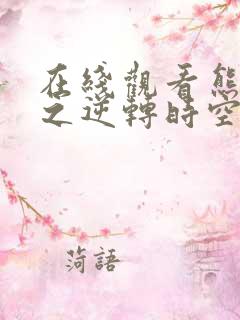 在綫觀看熊
之逆轉時空
菏語